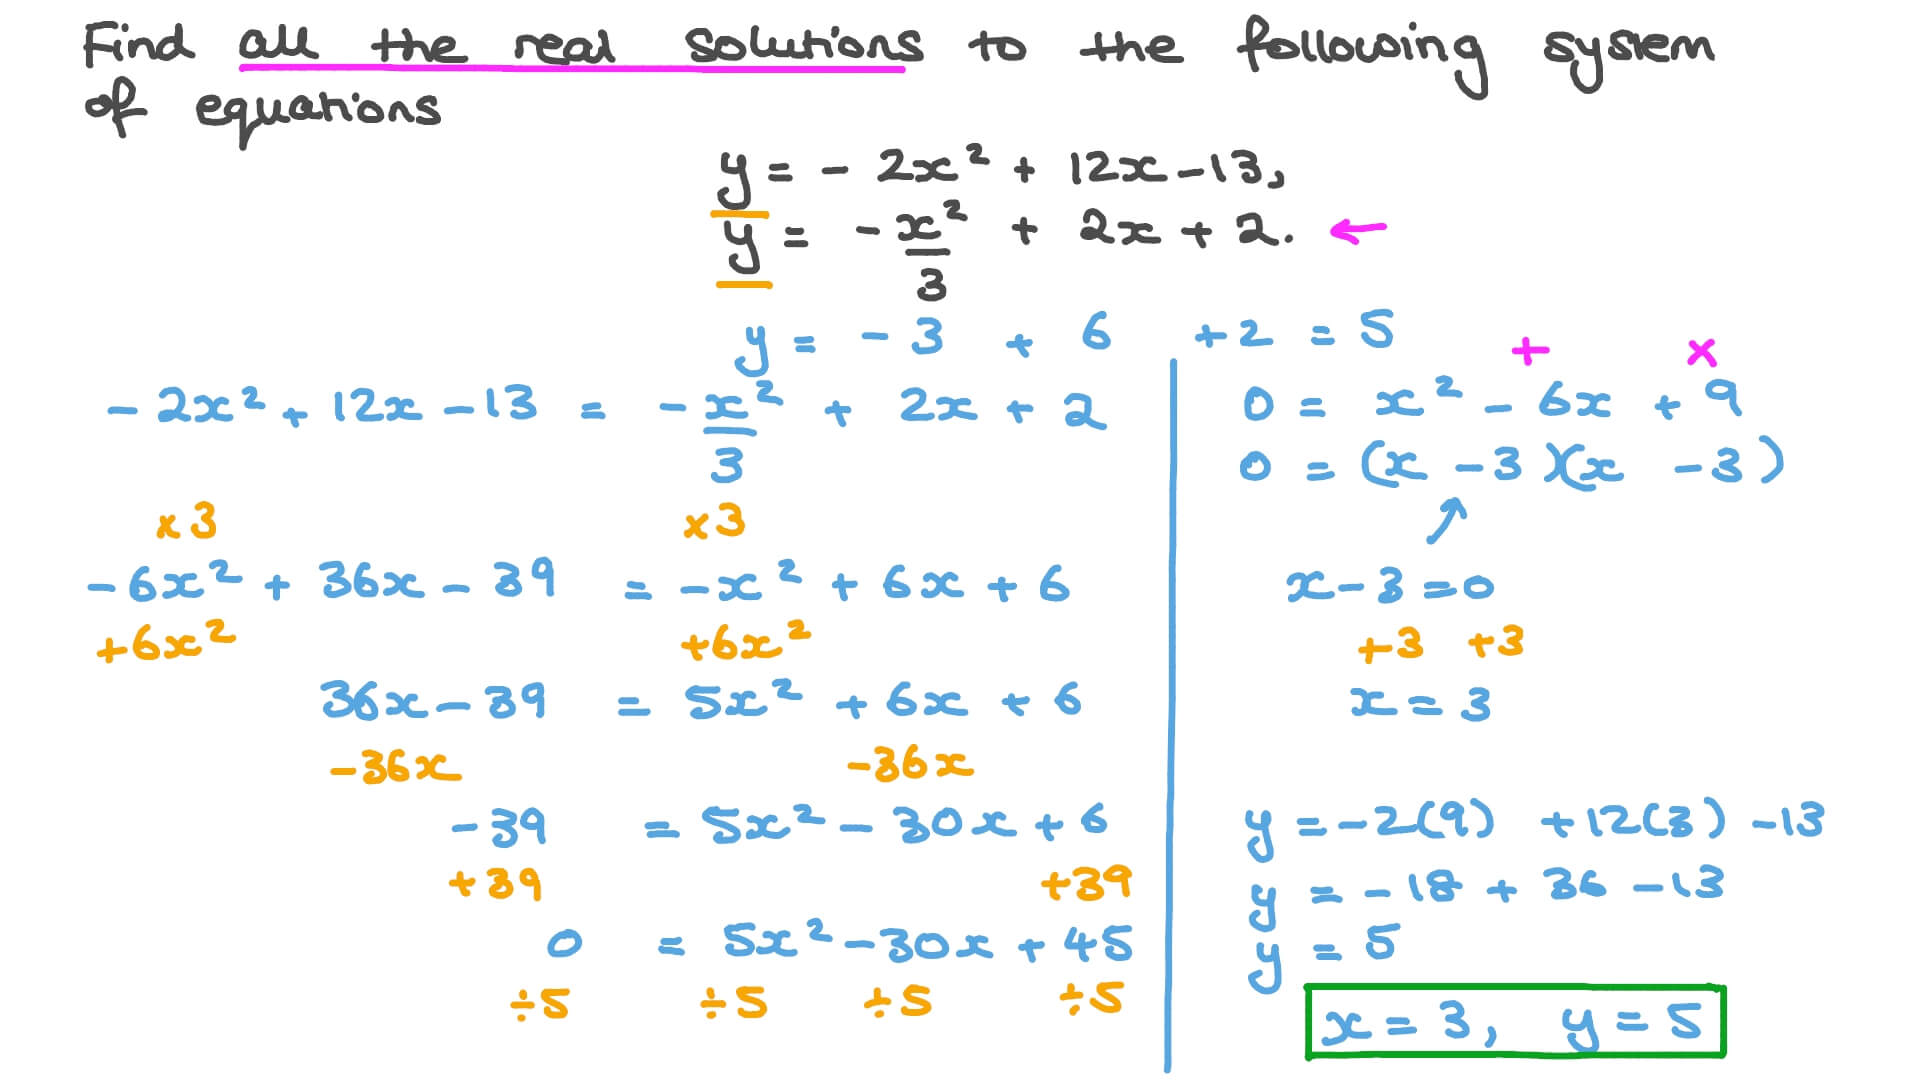 Find all the real solutions to the following system
of equations
y = - 2x² + 12x - 13,
y = - x²/3 + 2x + 2. ←
y = - 3 + 6 + 2 = 5
- 2x² + 12x - 13 = - x²/3 + 2x + 2
×3 ×3
- 6x² + 36x - 39 = - x² + 6x + 6
+6x² +6x²
36x - 39 = 5x² + 6x + 6
-36x -36x
-39 = 5x² - 30x + 6
+39 +39
0 = 5x² - 30x + 45
÷5 ÷5 ÷5 ÷5
+ ×
0 = x² - 6x + 9
0 = (x - 3)(x - 3)
x - 3 = 0
+3 +3
x = 3
y = -2(9) + 12(3) - 13
y = - 18 + 36 - 13
y = 5
x = 3, y = 5